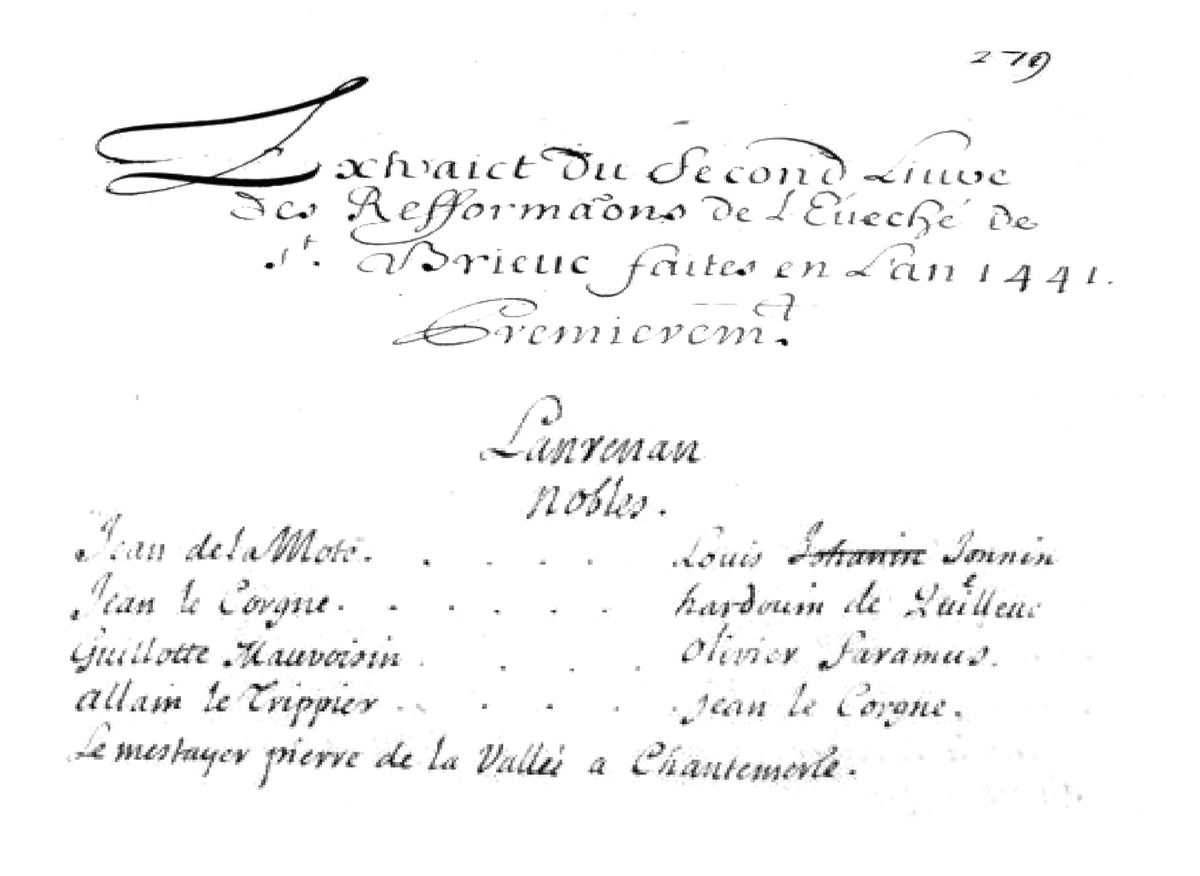 279
Extraict du Second Liure
des Refformaõns de L'Eueché de
St. Brieuc faites en L'an 1441.
Premieremt.
Lanrenan
nobles.
Jean de la Mote. . . . . Louis Johanin Jonnin
Jean le Corgne. . . . . . hardouin de Quilleuc
Guillotte Mauvoisin . . . . Olivier Faramus.
allain le Trippier . . . . . jean le Corgne.
Le mestayer pierre de la Valleé a Chantemerle.